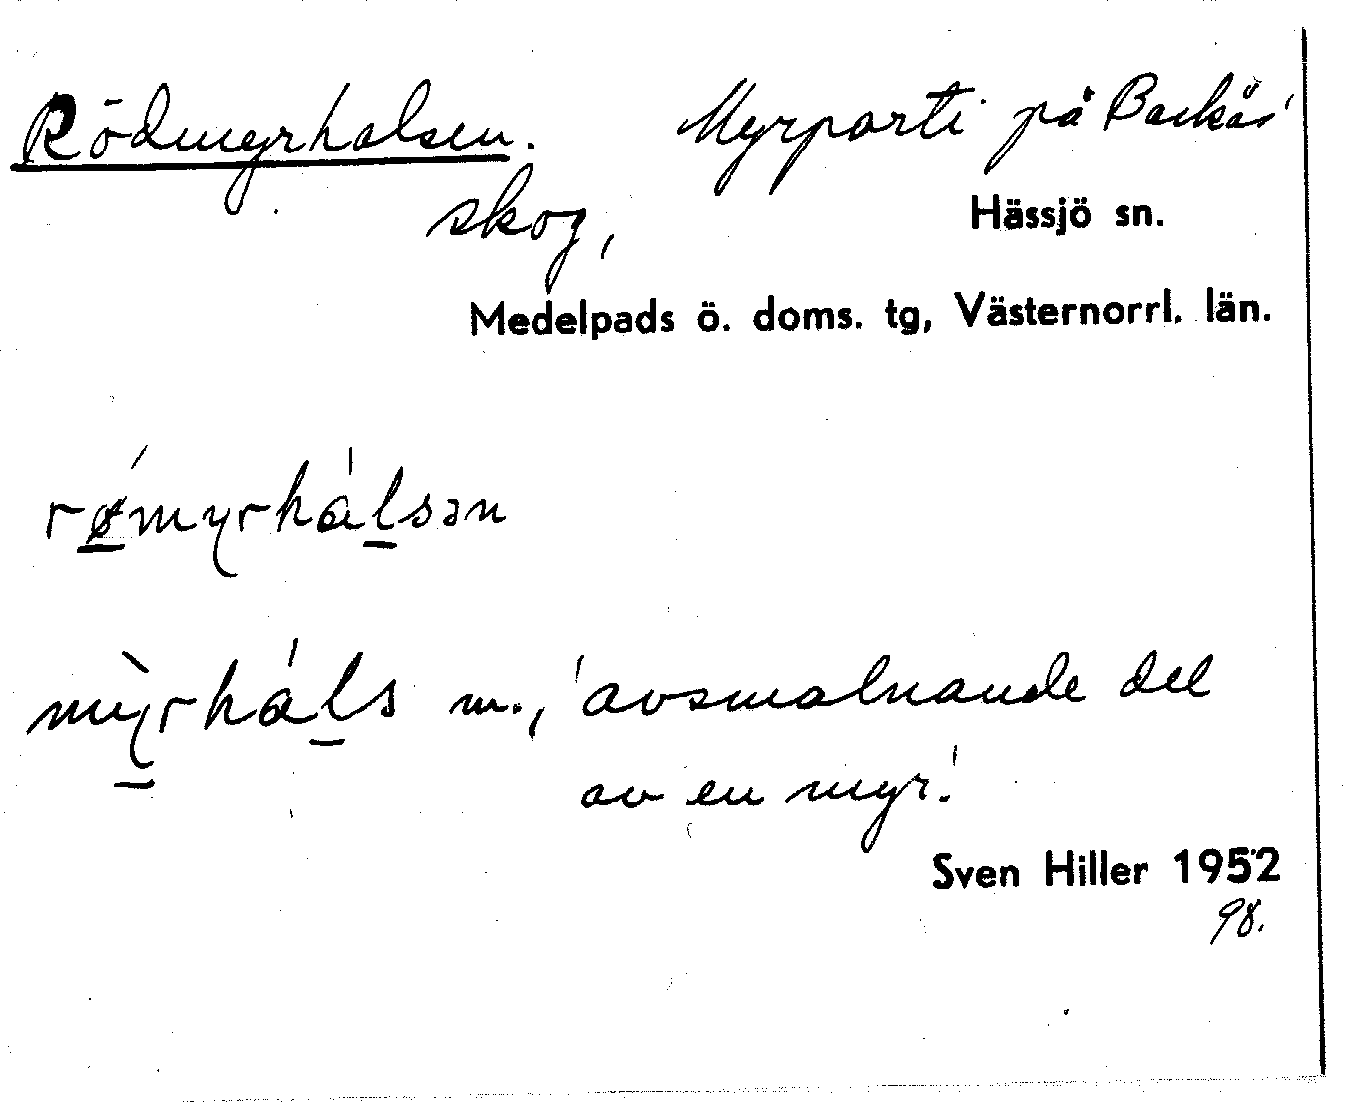 Rödmyrhalsen. Myrparti på Backås'
skog, Hässjö sn.
Medelpads ö. doms. tg, Västernorrl. län.
rǿ̱myrháḻsən
mỳ̱rháḻs m., 'avsmalnande del
av en myr.'
Sven Hiller 1952
98.